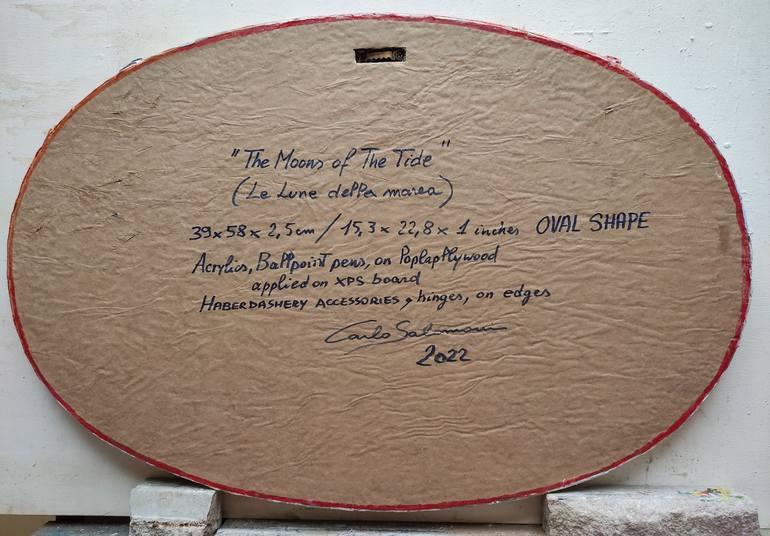 "The Moons of The Tide"
(Le Lune della marea)
39x58x2,5cm/15,3x22,8x1 inches OVAL SHAPE
Acrylics, Ballpoint pens, on PoplapPlywood
applied on XPS board
HABERDASHERY ACCESSORIES, hinges, on edges
Carlo Salomoni
2022